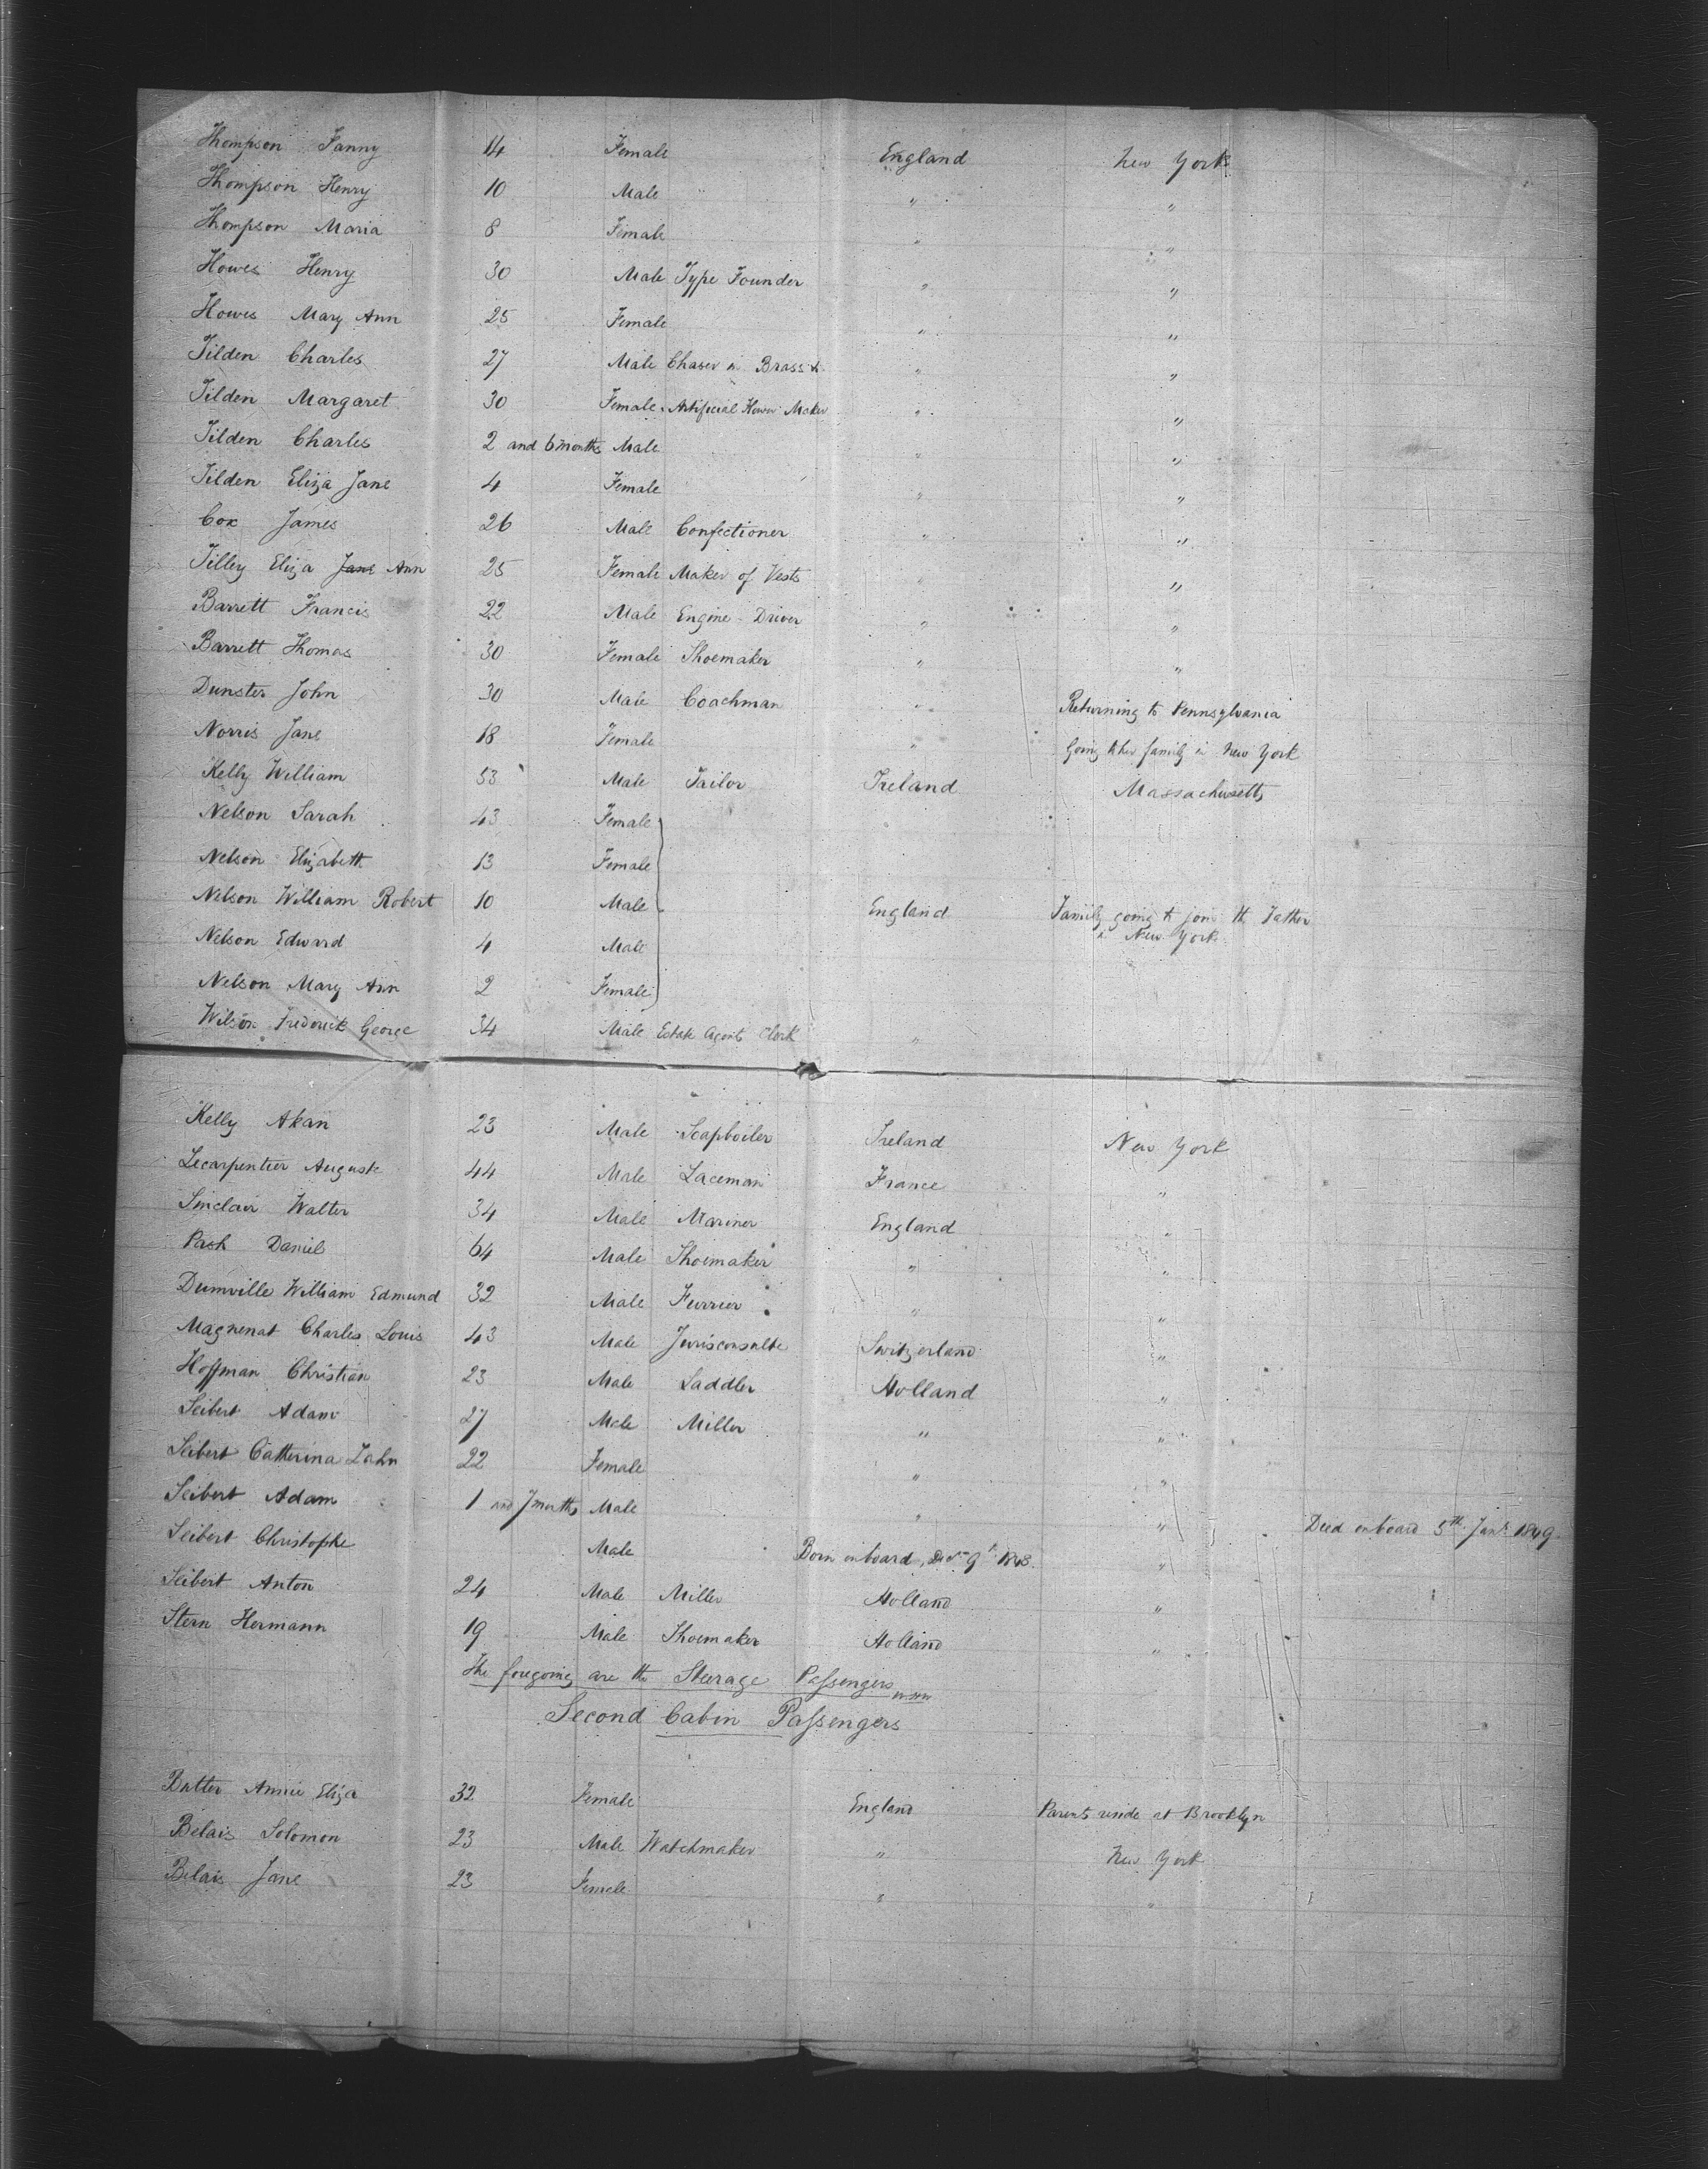 Thompson Fanny 14 Female England New York
Thompson Henry 10 Male " "
Thompson Maria 8 Female " "
Howes Henry 30 Male Type Founder " "
Howes Mary Ann 25 Female " "
Tilden Charles 27 Male Chaser in Brass & " "
Tilden Margaret 30 Female Artificial Flower Maker " "
Tilden Charles 2 and 6 months Male " "
Tilden Eliza Jane 4 Female " "
Cox James 26 Male Confectioner " "
Tilley Eliza Jane Ann 25 Female Maker of Vests " "
Barrett Francis 22 Male Engine-Driver " "
Barrett Thomas 30 Female Shoemaker " "
Dunster John 30 Male Coachman " Returning to Pennsylvania
Norris Jane 18 Female " Going to her family in New York
Kelly William 53 Male Tailor Ireland Massachusetts
Nelson Sarah 43 Female
Nelson Elizabeth 13 Female
Nelson William Robert 10 Male England Family going to join the Father
in New York
Nelson Edward 4 Male
Nelson Mary Ann 2 Female
Wilson Frederick George 34 Male Estate Agents Clerk "
Kelly Akan 23 Male Soapboiler Ireland New York
Lecarpentier Auguste 44 Male Laceman France "
Sinclair Walter 34 Male Mariner England "
Pash Daniel 64 Male Shoemaker " "
Dumville William Edmund 32 Male Furrier " "
Magnenat Charles Louis 43 Male Jurisconsulte Switzerland "
Hoffman Christian 23 Male Saddler Holland "
Seibert Adam 27 Male Miller " "
Seibert Catherina Zahn 22 Female " "
Seibert Adam 1 and 7 months Male " " Died onboard 5th Jany 1849.
Seibert Christophe Male Born onboard, Decr 9th 1848. "
Seibert Anton 24 Male Miller Holland "
Stern Hermann 19 Male Shoemaker Holland "
The foregoing are the Steerage Passengers
Second Cabin Passengers
Butter Annie Eliza 32 Female England Parents reside at Brooklyn
Belais Solomon 23 Male Watchmaker " New York
Belais Jane 23 Female " "